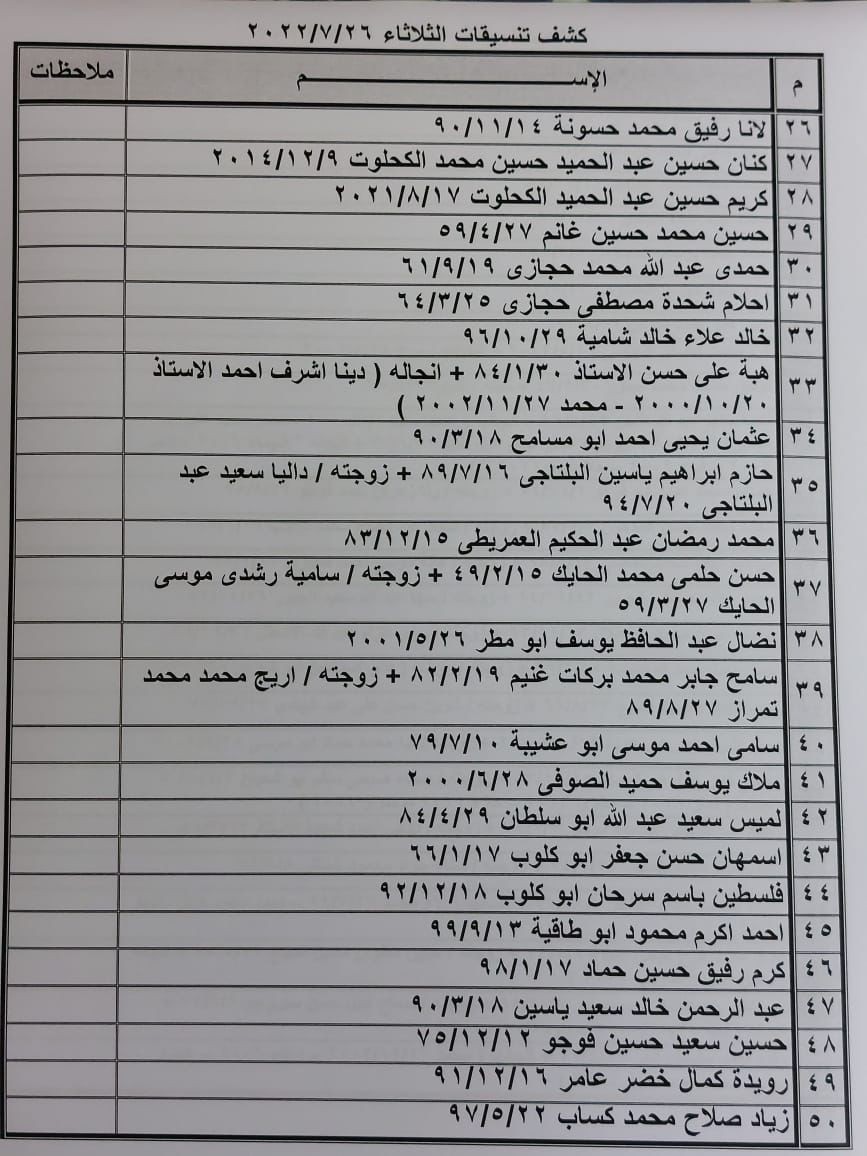 كشف تنسيقات الثلاثاء ٢٠٢٢/٧/٢٦
م الإســـــــــم ملاحظات
٢٦ لانا رفيق محمد حسونة ٩٠/١١/١٤
٢٧ كنان حسين عبد الحميد حسين محمد الكحلوت ٢٠١٤/١٢/٩
٢٨ كريم حسين عبد الحميد الكحلوت ٢٠٢١/٨/١٧
٢٩ حسين محمد حسين غانم ٥٩/٤/٢٧
٣٠ حمدى عبد الله محمد حجازى ٦١/٩/١٩
٣١ احلام شحدة مصطفى حجازى ٦٤/٣/٢٥
٣٢ خالد علاء خالد شامية ٩٦/١٠/٢٩
٣٣ هبة على حسن الاستاذ ٨٤/١/٣٠ + انجاله ( دينا اشرف احمد الاستاذ
٢٠٠٠/١٠/٢٠ - محمد ٢٠٠٢/١١/٢٧ )
٣٤ عثمان يحيى احمد ابو مسامح ٩٠/٣/١٨
٣٥ حازم ابراهيم ياسين البلتاجى ٨٩/٧/١٦ + زوجته / داليا سعيد عبد
البلتاجى ٩٤/٧/٢٠
٣٦ محمد رمضان عبد الحكيم العمريطى ٨٣/١٢/١٥
٣٧ حسن حلمى محمد الحايك ٤٩/٢/١٥ + زوجته / سامية رشدى موسى
الحايك ٥٩/٣/٢٧
٣٨ نضال عبد الحافظ يوسف ابو مطر ٢٠٠١/٥/٢٦
٣٩ سامح جابر محمد بركات غنيم ٨٢/٢/١٩ + زوجته / اريج محمد محمد
تمراز ٨٩/٨/٢٧
٤٠ سامى احمد موسى ابو عشيبة ٧٩/٧/١٠
٤١ ملاك يوسف حميد الصوفى ٢٠٠٠/٦/٢٨
٤٢ لميس سعيد عبد الله ابو سلطان ٨٤/٤/٢٩
٤٣ اسمهان حسن جعفر ابو كلوب ٦٦/١/١٧
٤٤ فلسطين باسم سرحان ابو كلوب ٩٢/١٢/١٨
٤٥ احمد اكرم محمود ابو طاقية ٩٩/٩/١٣
٤٦ كرم رفيق حسين حماد ٩٨/١/١٧
٤٧ عبد الرحمن خالد سعيد ياسين ٩٠/٣/١٨
٤٨ حسين سعيد حسين فوجو ٧٥/١٢/١٢
٤٩ رويدة كمال خضر عامر ٩١/١٢/١٦
٥٠ زياد صلاح محمد كساب ٩٧/٥/٢٢